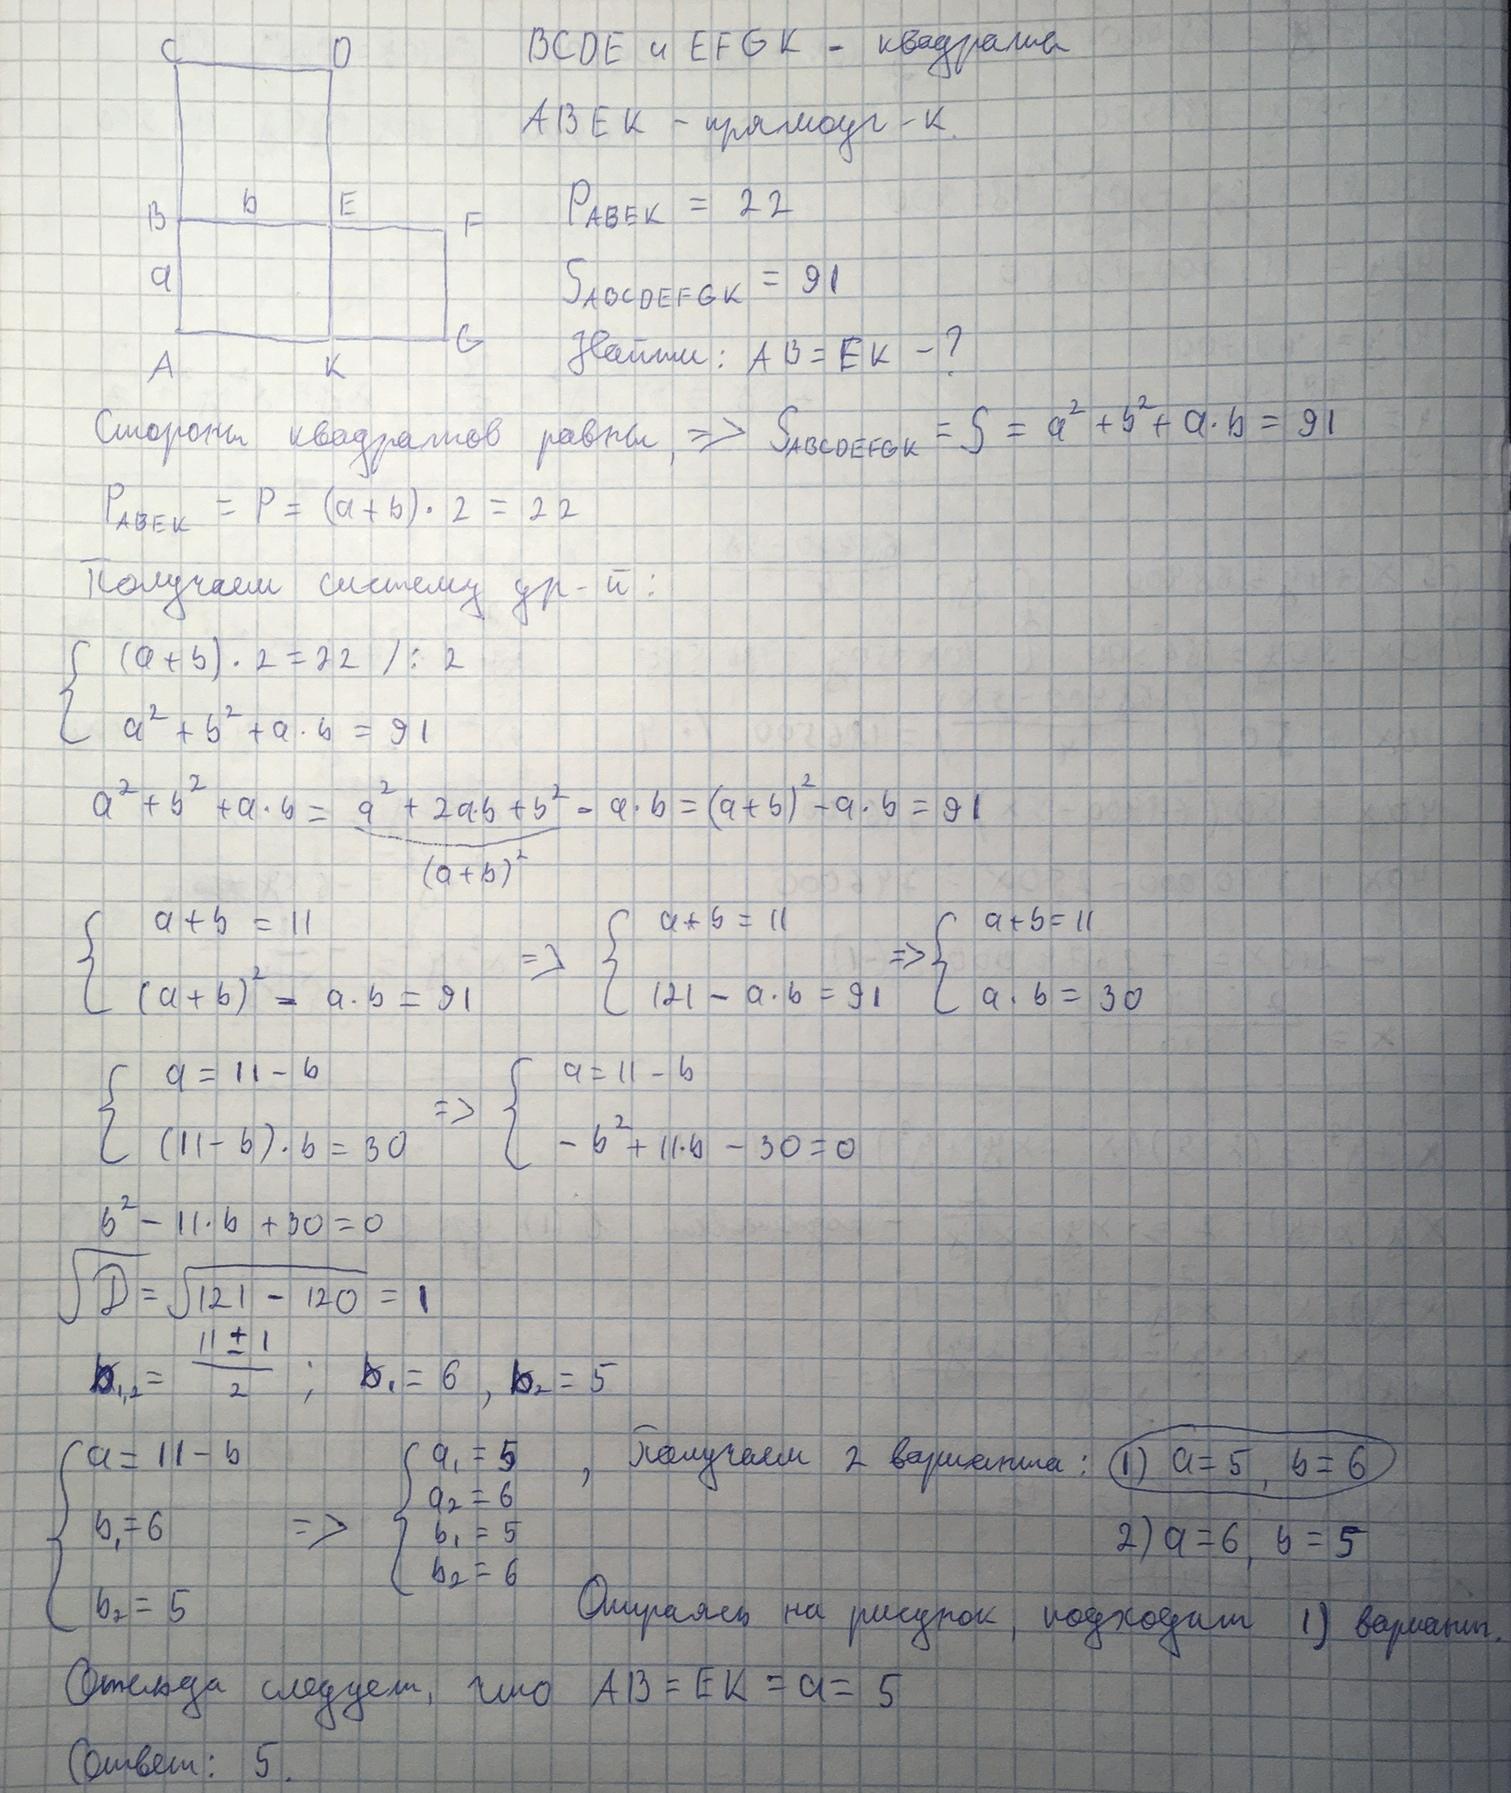 C D
BCDE и EFGK - квадраты
ABEK - прямоуг-к.
B b E F
P_ABEK = 22
a
S_ABCDEFGK = 91
A K G
Найти: AB = EK - ?
Стороны квадратов равны, => S_ABCDEFGK = S = a² + b² + a·b = 91
P_ABEK = P = (a+b)·2 = 22
Получаем систему ур-й:
{ (a+b)·2 = 22 /:2
a² + b² + a·b = 91
a² + b² + a·b = a² + 2ab + b² - a·b = (a+b)² - a·b = 91
(a+b)²
{ a+b = 11 => { a+b = 11 => { a+b = 11
(a+b)² - a·b = 91 121 - a·b = 91 a·b = 30
{ a = 11 - b => { a = 11 - b
(11-b)·b = 30 -b² + 11·b - 30 = 0
b² - 11·b + 30 = 0
√D = √121 - 120 = 1
b₁,₂ = (11 ± 1)/2 ; b₁ = 6, b₂ = 5
{ a = 11 - b { a₁ = 5 , Получаем 2 варианта: 1) a = 5, b = 6
a₂ = 6
b₁ = 6 => b₁ = 5 2) a = 6, b = 5
b₂ = 6
b₂ = 5 Опираясь на рисунок, подходит 1) вариант.
Отсюда следует, что AB = EK = a = 5
Ответ: 5.